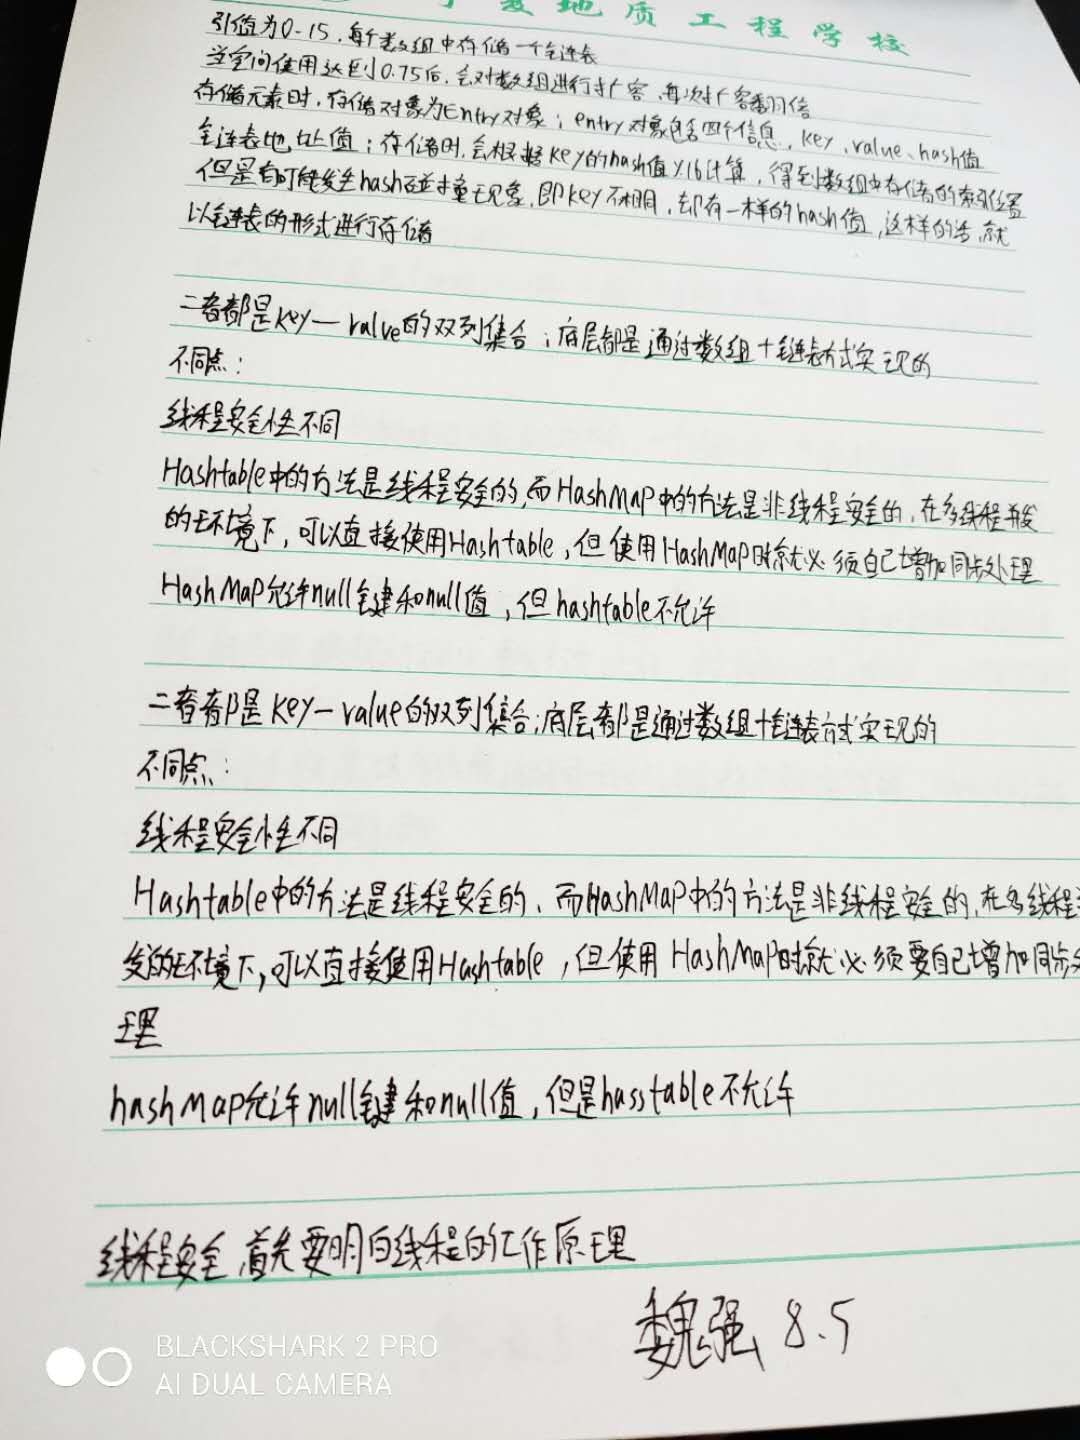 夏地质工程学校
引值为0-15，每个数组中存储一个链表
当空间使用达到0.75后，会对数组进行扩容，每次扩容翻倍
存储元素时，存储对象为Entry对象；entry对象包括四个信息，key、value、hash值
链表地址值；存储时，会根据key的hash值%16计算，得到数组中存储的索引位置
但是有可能发生hash碰撞重现象，即key不相同，却有一样的hash值，这样的话，就
以链表的形式进行存储
二者都是key—value的双列集合；底层都是通过数组+链表方式实现的
不同点：
线程安全性不同
Hashtable中的方法是线程安全的，而HashMap中的方法是非线程安全的，在多线程并发
的环境下，可以直接使用Hashtable，但使用HashMap时就必须自己增加同步处理
HashMap允许null键和null值，但hashtable不允许
二者都是key—value的双列集合；底层都是通过数组+链表方式实现的
不同点：
线程安全性不同
Hashtable中的方法是线程安全的、而HashMap中的方法是非线程安全的，在多线程
发的环境下，可以直接使用Hashtable，但使用HashMap时就必须要自己增加同步
理
hashMap允许null键和null值，但是hasstable不允许
线程安全，首先要明白线程的工作原理
魏强 8.5
BLACKSHARK 2 PRO
AI DUAL CAMERA